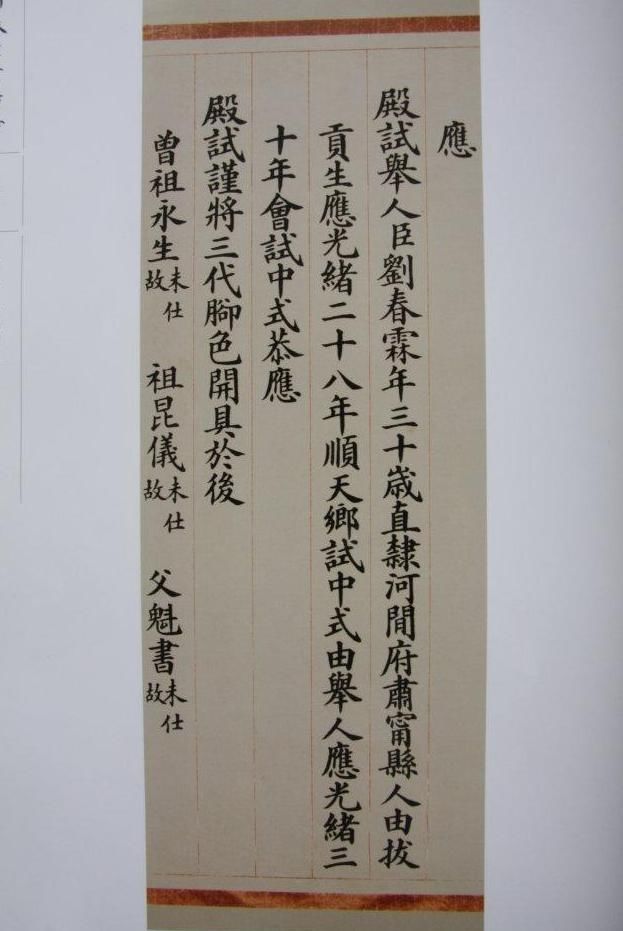 應
殿試舉人臣劉春霖年三十歲直隸河間府肅甯縣人由拔
貢生應光緒二十八年順天鄉試中式由舉人應光緒三
十年會試中式恭應
殿試謹將三代腳色開具於後
曾祖永生未仕故 祖昆儀未仕故 父魁書未仕故